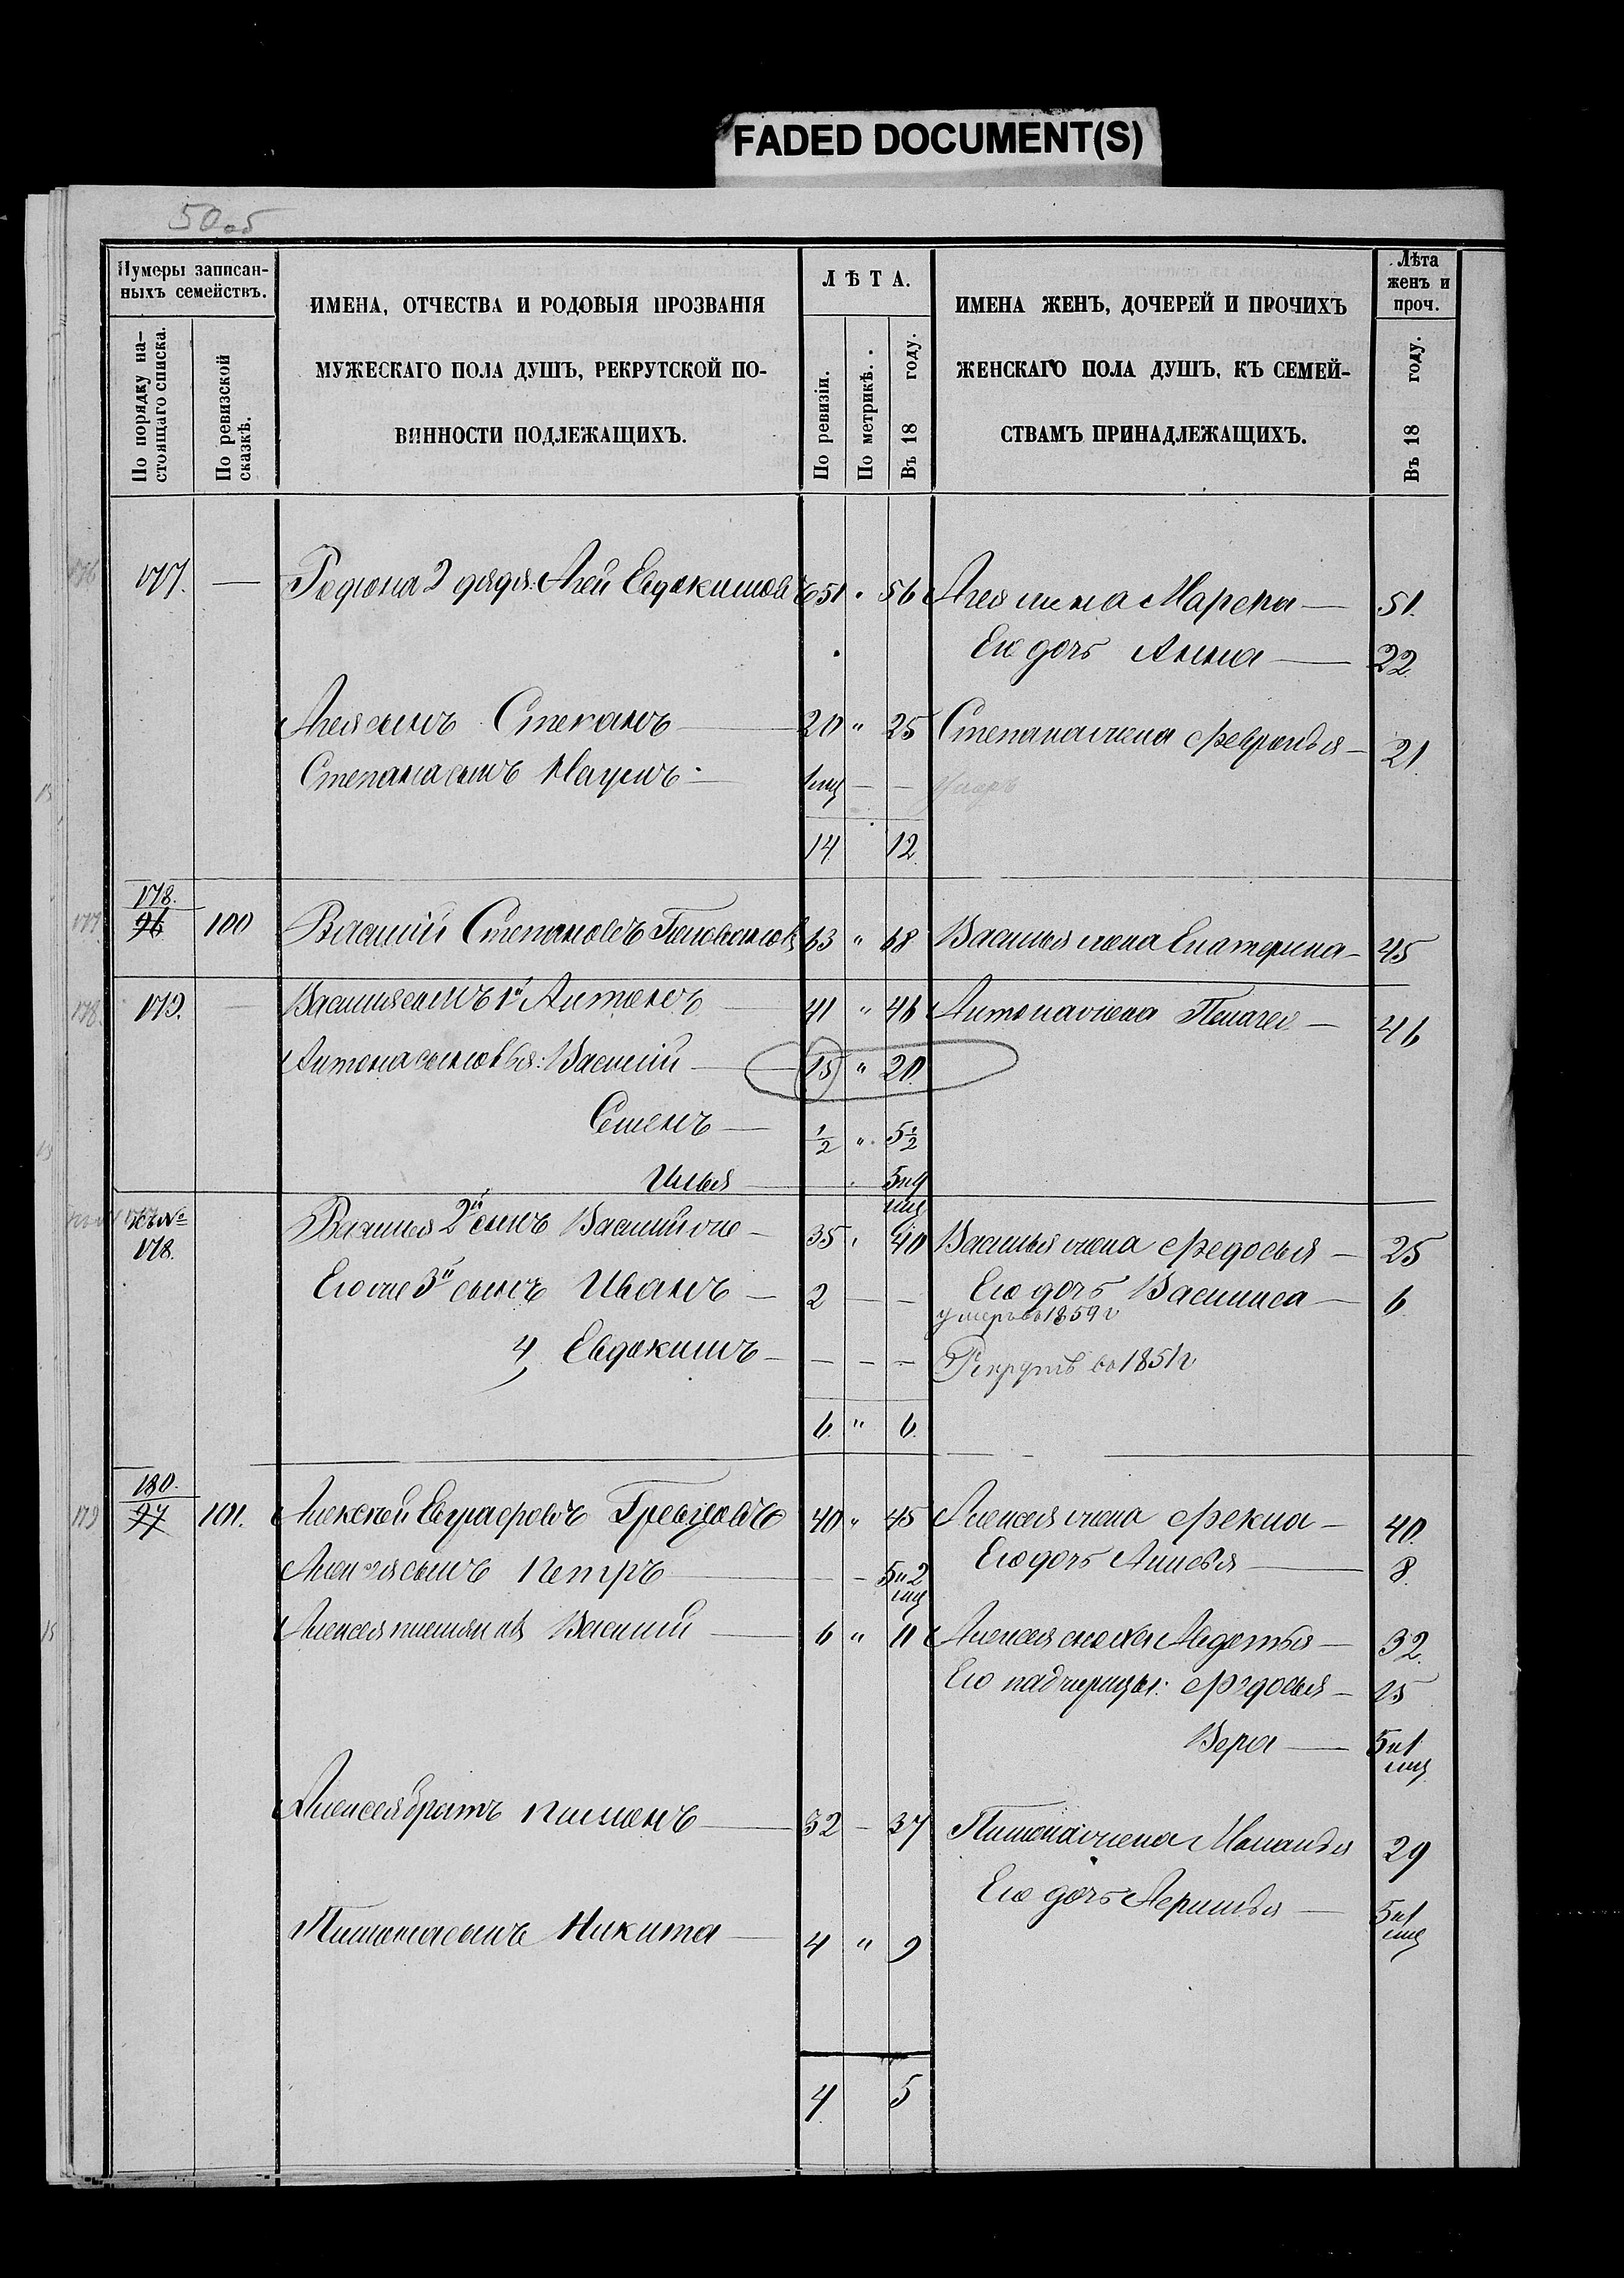 FADED DOCUMENT(S)
50 об
Нумеры записан-
ныхъ семействъ.
По порядку на-
стоящаго списка.
По ревизской
сказкѣ.
ИМЕНА, ОТЧЕСТВА И РОДОВЫЯ ПРОЗВАНІЯ
МУЖЕСКАГО ПОЛА ДУШЪ, РЕКРУТСКОЙ ПО-
ВИННОСТИ ПОДЛЕЖАЩИХЪ.
ЛѢТА.
По ревизіи.
По метрикѣ.
Въ 18 году.
ИМЕНА ЖЕНЪ, ДОЧЕРЕЙ И ПРОЧИХЪ
ЖЕНСКАГО ПОЛА ДУШЪ, КЪ СЕМЕЙ-
СТВАМЪ ПРИНАДЛЕЖАЩИХЪ.
Лѣта
женъ и
проч.
Въ 18 году.
176 177. — Родиона 2 дядя: Агей Евдокимовъ 51 " 56 Агея жена Марѳа — 51.
Его дочь Анна — 22
Агея сынъ Степанъ — 20 " 25 Степана жена Февронья — 21
Степана сынъ Наумъ — 1 мц — — умеръ
14 12
178.
177 96 100 Василий Степановъ 63 " 68 Василья жена Екатерина — 45
178. 179. — Василия сынъ 1й Антонъ — 41 " 46 Антона жена Пелагея — 46
Антона сыновья: Василий — 15 " 20
Семенъ — ½ " 5½
Илья — 5 и 9 мц
къ №
178. Василья 2й сынъ Василий же — 35 " 40 Василья жена Федосья — 25
Его же 3й сынъ Иванъ — 2 — — Его дочь Василиса — 6
умеръ въ 1859 г
4, Евдокимъ — — — — Рекрутъ въ 1851 г
6. " 6.
180.
179 97 101. Алексѣй Евграфовъ Гревцовъ 40 " 45 Алексея жена Фекла — 40.
Алексея сынъ Петръ — — — 5 и 2 мц Его дочь Анисья — 8.
Алексея племянникъ Василий — 6 " 11 Алексея сноха Авдотья — 32.
Его падчерицы: Федосья — 15
Вера — 5 и 1 мц
Алексея братъ Пименъ — 32 — 37 Пимена жена Маланья 29
Его дочь — 5 и 1 мц
Пимена сынъ Никита — 4 " 9
4 5